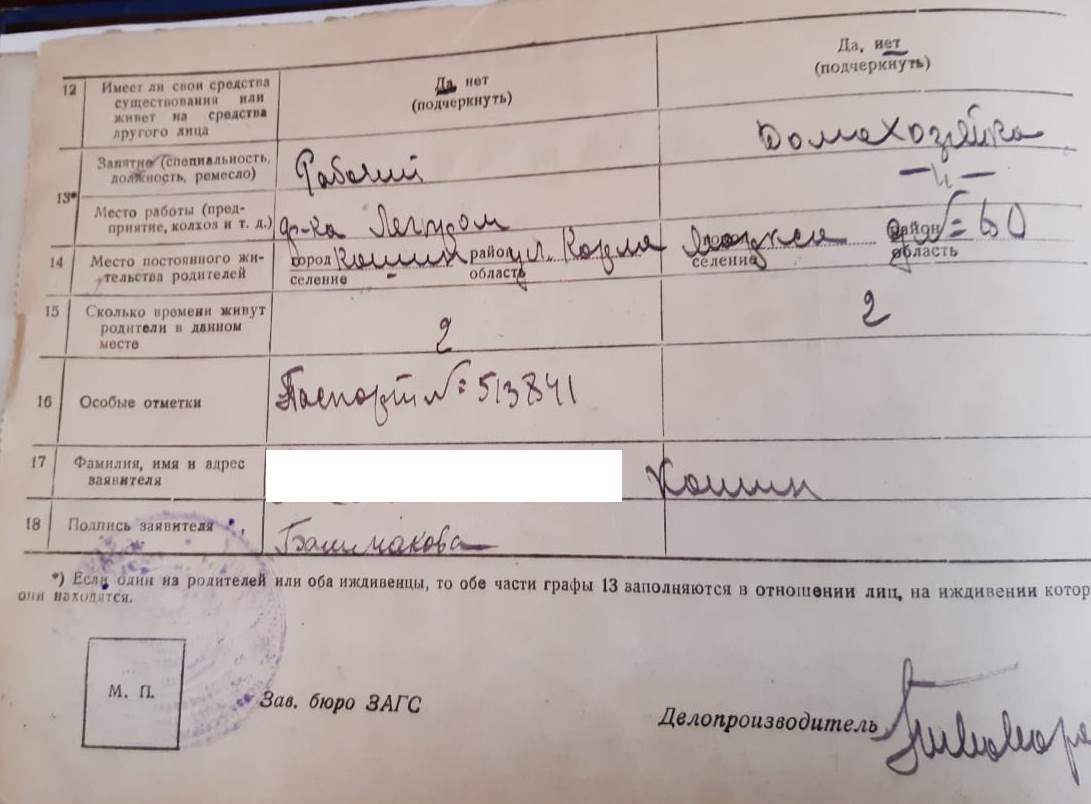 12 Имеет ли свои средства существования или живет на средства другого лица
Да, нет
(подчеркнуть)
Да, нет
(подчеркнуть)
13* Занятие (специальность, должность, ремесло)
Рабочий
Домохозяйка
Место работы (предприятие, колхоз и т. д.)
ф-ка
— " —
14 Место постоянного жительства родителей
город Кашин район ул. Карла № 60 район
селение область селение область
15 Сколько времени живут родители в данном месте
2
2
16 Особые отметки
Паспорт № 513841
17 Фамилия, имя и адрес заявителя
Кашин
18 Подпись заявителя
Башмакова
*) Если один из родителей или оба иждивенцы, то обе части графы 13 заполняются в отношении лиц, на иждивении котор
они находятся.
М. П.
Зав. бюро ЗАГС
Делопроизводитель